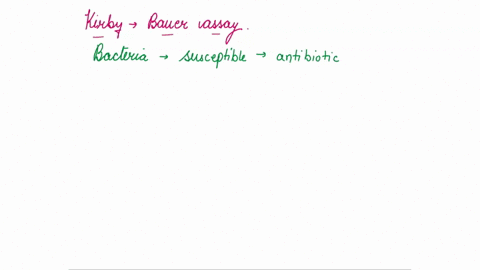 Kirby → Bauer assay.
Bacteria → susceptible → antibiotic